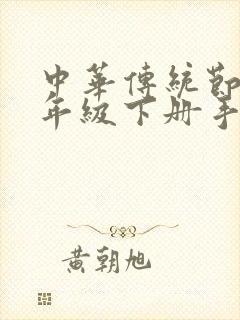 中華傳統節
年級下册手
黄朝旭